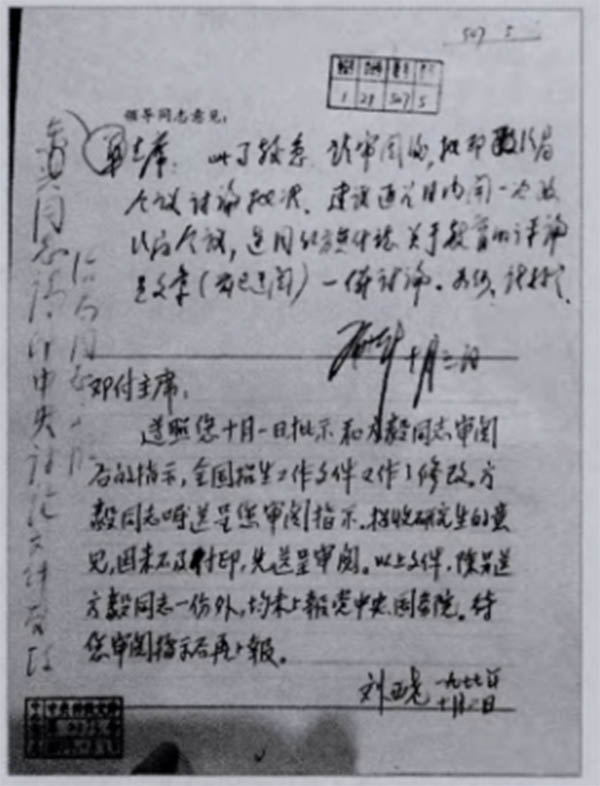 507 5
1 29 507 5
领导同志意见:
华主席: 较急, 请审阅后, 批印政治局
会议讨论批准. 建议近几日内开一次政
治局会议, 连同红旗杂志关于教育的评论
员文章(前已送阅)一併讨论. 妥否, 请批示.
十月三日
东兴同志请印中央讨论文件发政
治局同志
邓付主席:
遵照您十月一日批示和方毅同志审阅
后的指示,全国招生工作文件又作了修改。方
毅同志嘱送呈您审阅指示。招收研究生的意
见,因来不及付印,先送呈审阅。以上文件,除另送
方毅同志一份外,均未上报党中央、国务院。待
您审阅指示后再上报。
刘西尧 一九七七年
十月 日